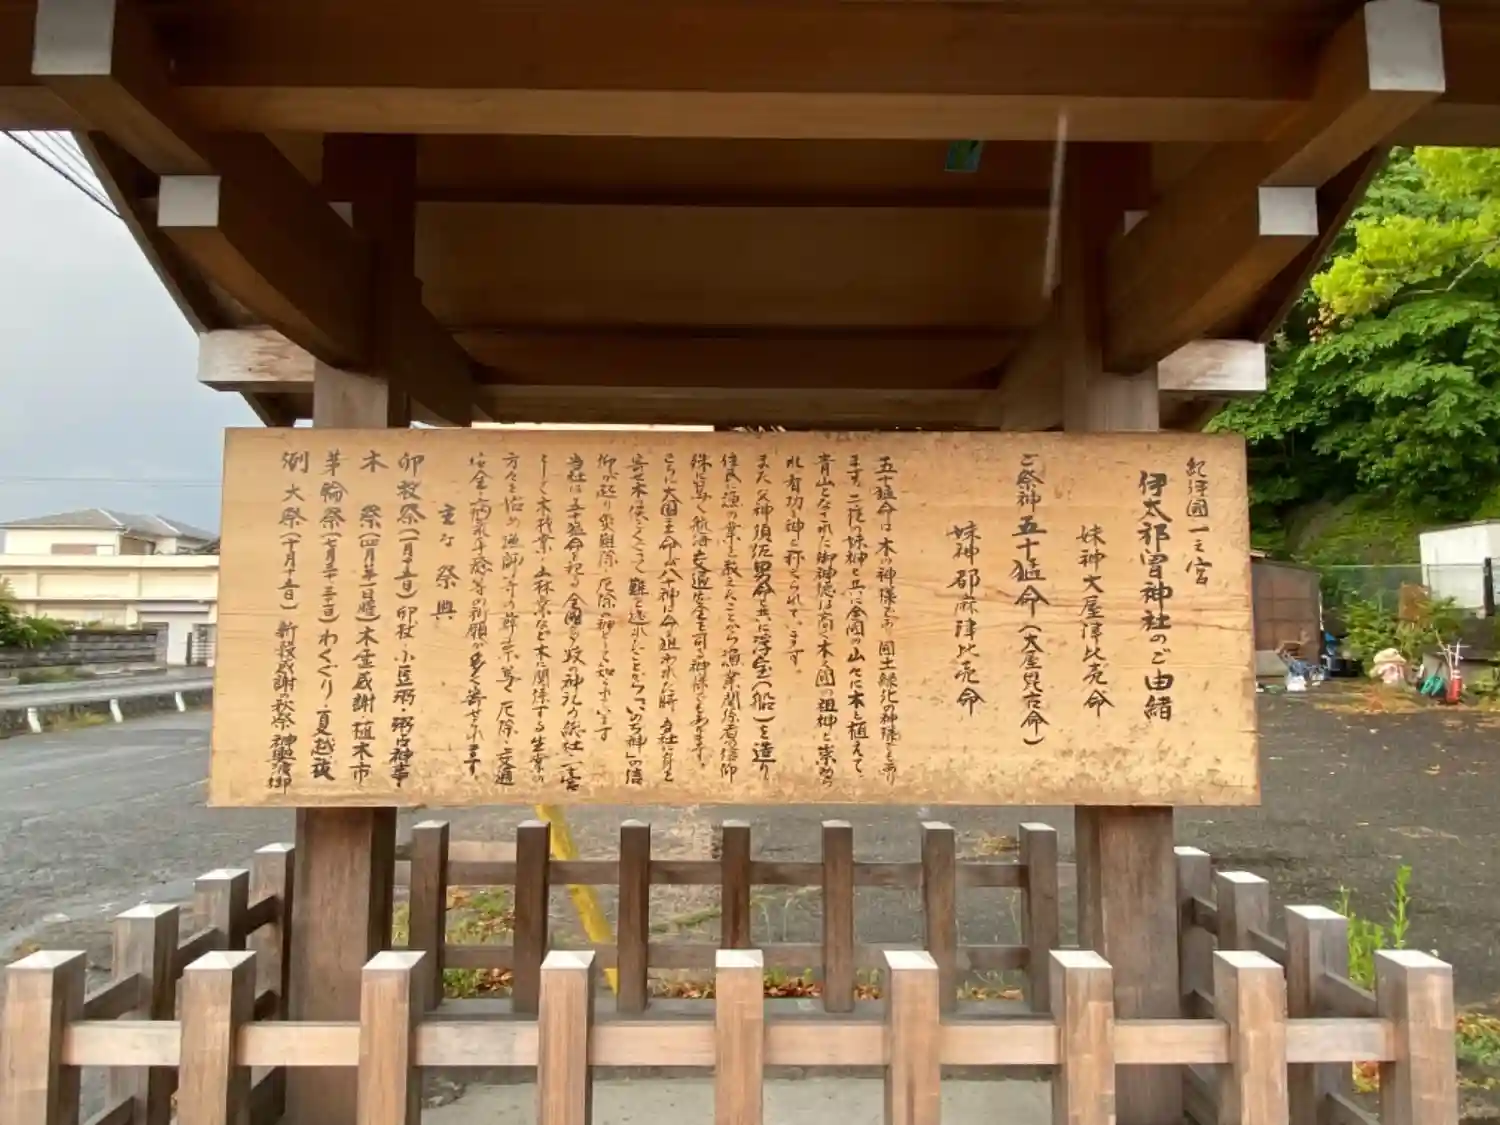 紀伊國一之宮
伊太祁曽神社のご由緒
妹神大屋津比売命
ご祭神 五十猛命(大屋毘古命)
妹神都麻津比売命
五十猛命は木の神様であり国土緑化の神様であり
ます。二柱の妹神と共に全国の山々に木を植えて
青山となされた御神徳は高く木の国の祖神と崇めら
れ有功の神と称えられています。
また父神須佐男命と共に浮宝(船)を造り
住民に漁の業を教えたことから漁業関係者の信仰
殊に篤く航海交通安全を司る神様でもあります。
さらに大国主命が八十神に命を狙われた時、当社に身を
寄せ木の俣をくぐって難を逃れたことから「いのち神」の信
仰が起り災難除、厄除の神として知られています
当社は五十猛命を祀る全国数々の神社の総社(一宮)
として木材業、山林業など木に関係する生業の
方々を始め漁師等の崇敬篤く厄除、交通
安全、病気平癒等の祈願が多く寄せられます。
主な祭典
卯杖祭(一月十五日)卯杖・小豆粥・粥占神事
木祭(四月第一日曜)木霊感謝・植木市
茅輪祭(七月三十・三十一日)わくぐり・夏越祓
例大祭(十月十五日)新穀感謝秋祭 神輿渡御